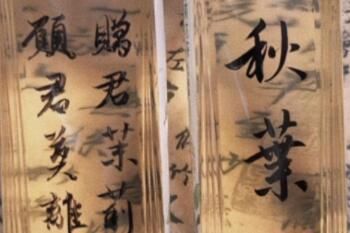 秋葉
贈君茉莉
願君莫離